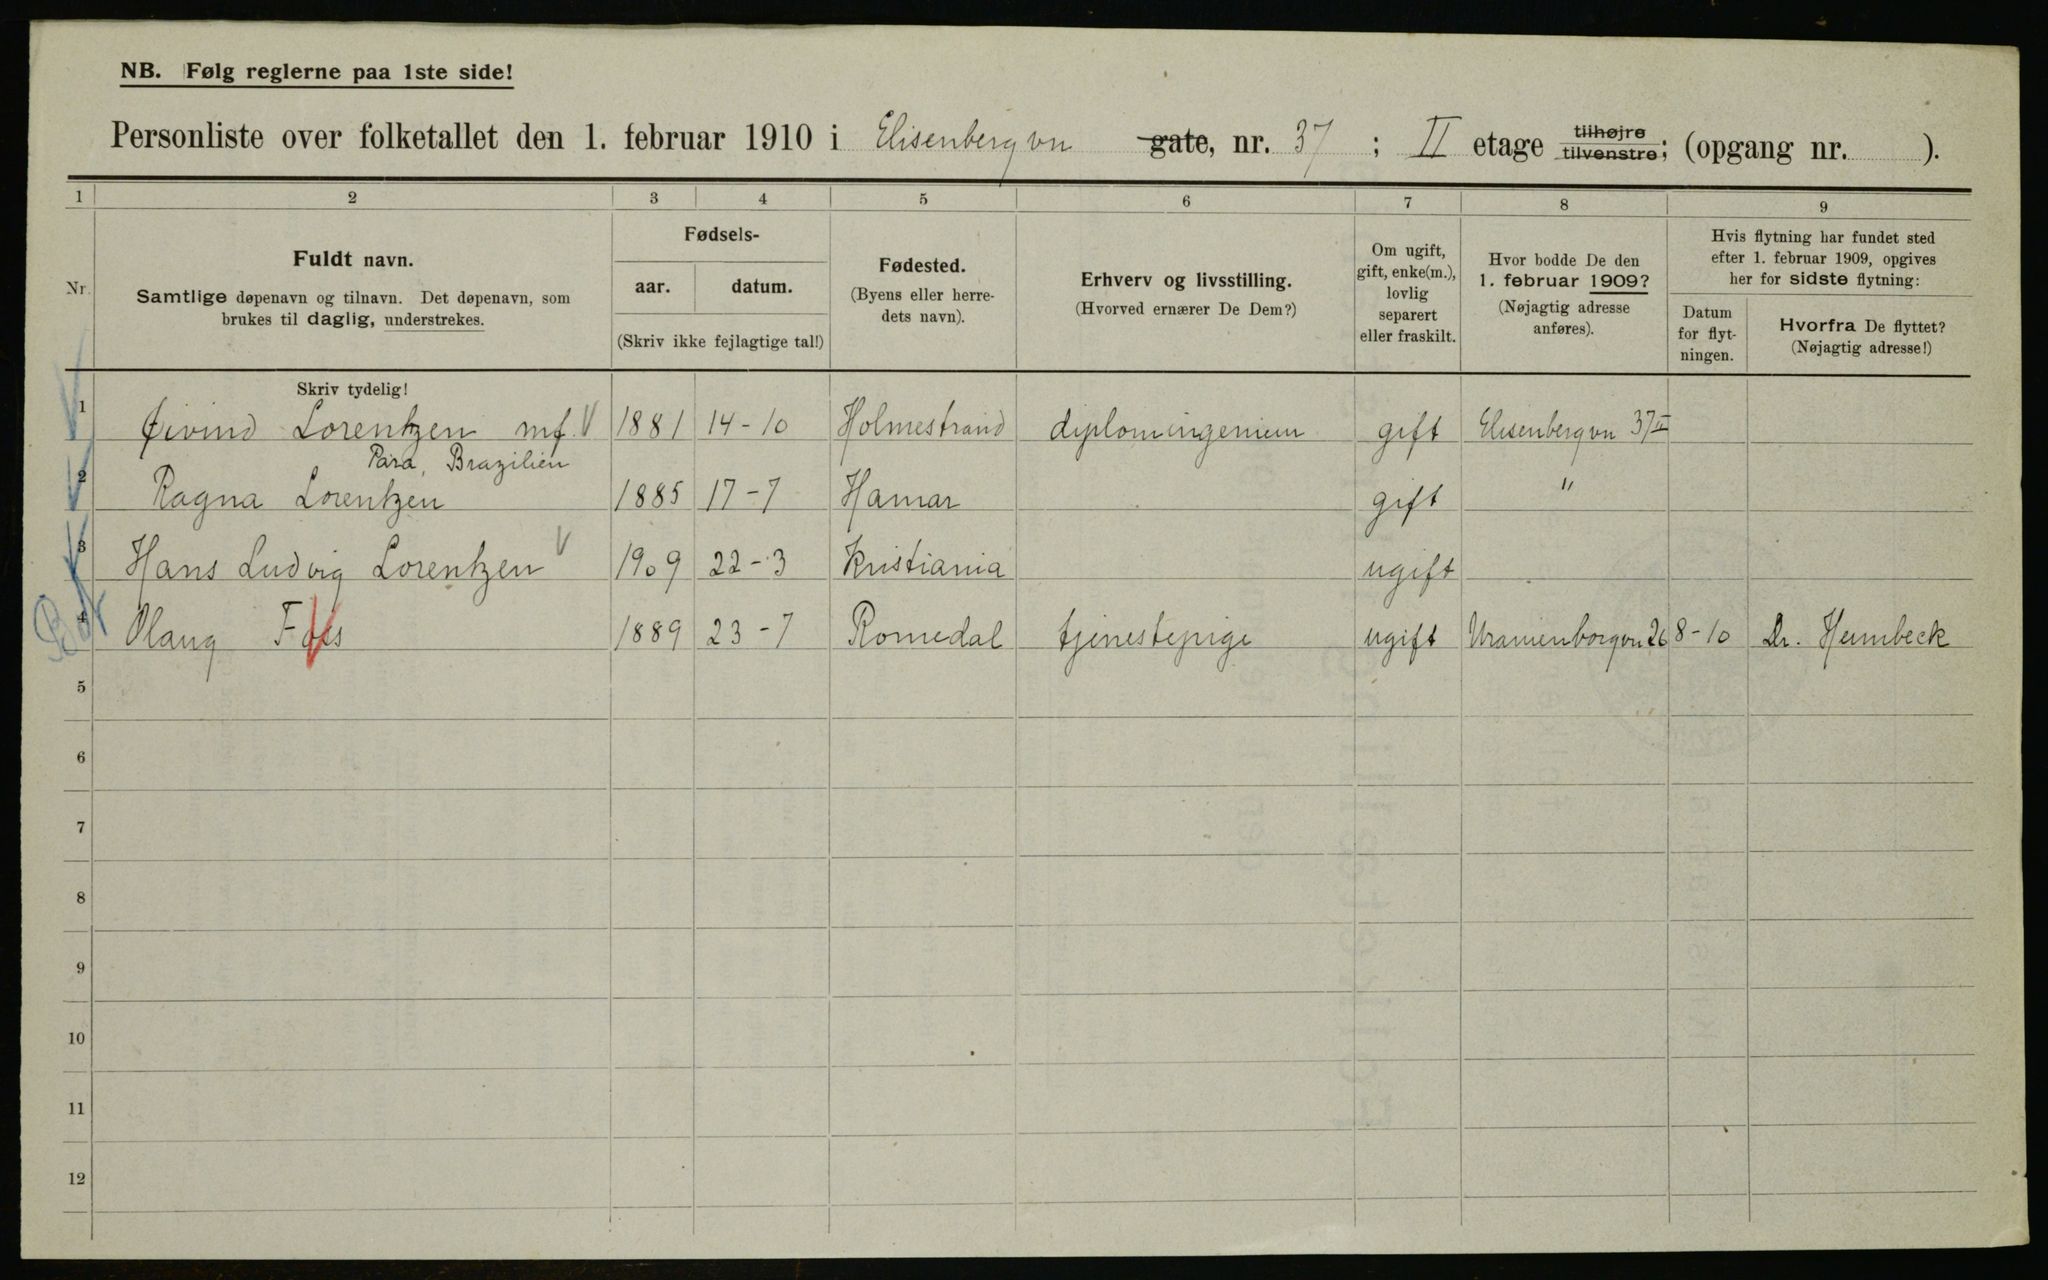 NB. Følg reglerne paa 1ste side!
Personliste over folketallet den 1. februar 1910 i Elisenbergvn gate, nr. 37 ; II etage tilhøjre tilvenstre; (opgang nr. ).
1 2 3 4 5 6 7 8 9
Nr.
Fuldt navn.
Samtlige døpenavn og tilnavn. Det døpenavn, som
brukes til daglig, understrekes.
Fødsels-
aar. datum.
(Skriv ikke fejlagtige tal!)
Fødested.
(Byens eller herre-
dets navn).
Erhverv og livsstilling.
(Hvorved ernærer De Dem?)
Om ugift,
gift, enke(m.),
lovlig
separert
eller fraskilt.
Hvor bodde De den
1. februar 1909?
(Nøjagtig adresse
anføres).
Hvis flytning har fundet sted
efter 1. februar 1909, opgives
her for sidste flytning:
Datum
for flyt-
ningen.
Hvorfra De flyttet?
(Nøjagtig adresse!)
Skriv tydelig!
1 Øivind Lorentzen mf. V 1881 14-10 Holmestrand diplomingeniør gift Elisenbergvn 37 II
Para, Brazilien
2 Ragna Lorentzen 1885 17-7 Hamar gift "
3 Hans Ludvig Lorentzen V 1909 22-3 Kristiania ugift
4 Olaug Foss 1889 23-7 Romedal tjenestepige ugift Uranienborgvn 26 8-10 Dr. Heimbeck
5
6
7
8
9
10
11
12